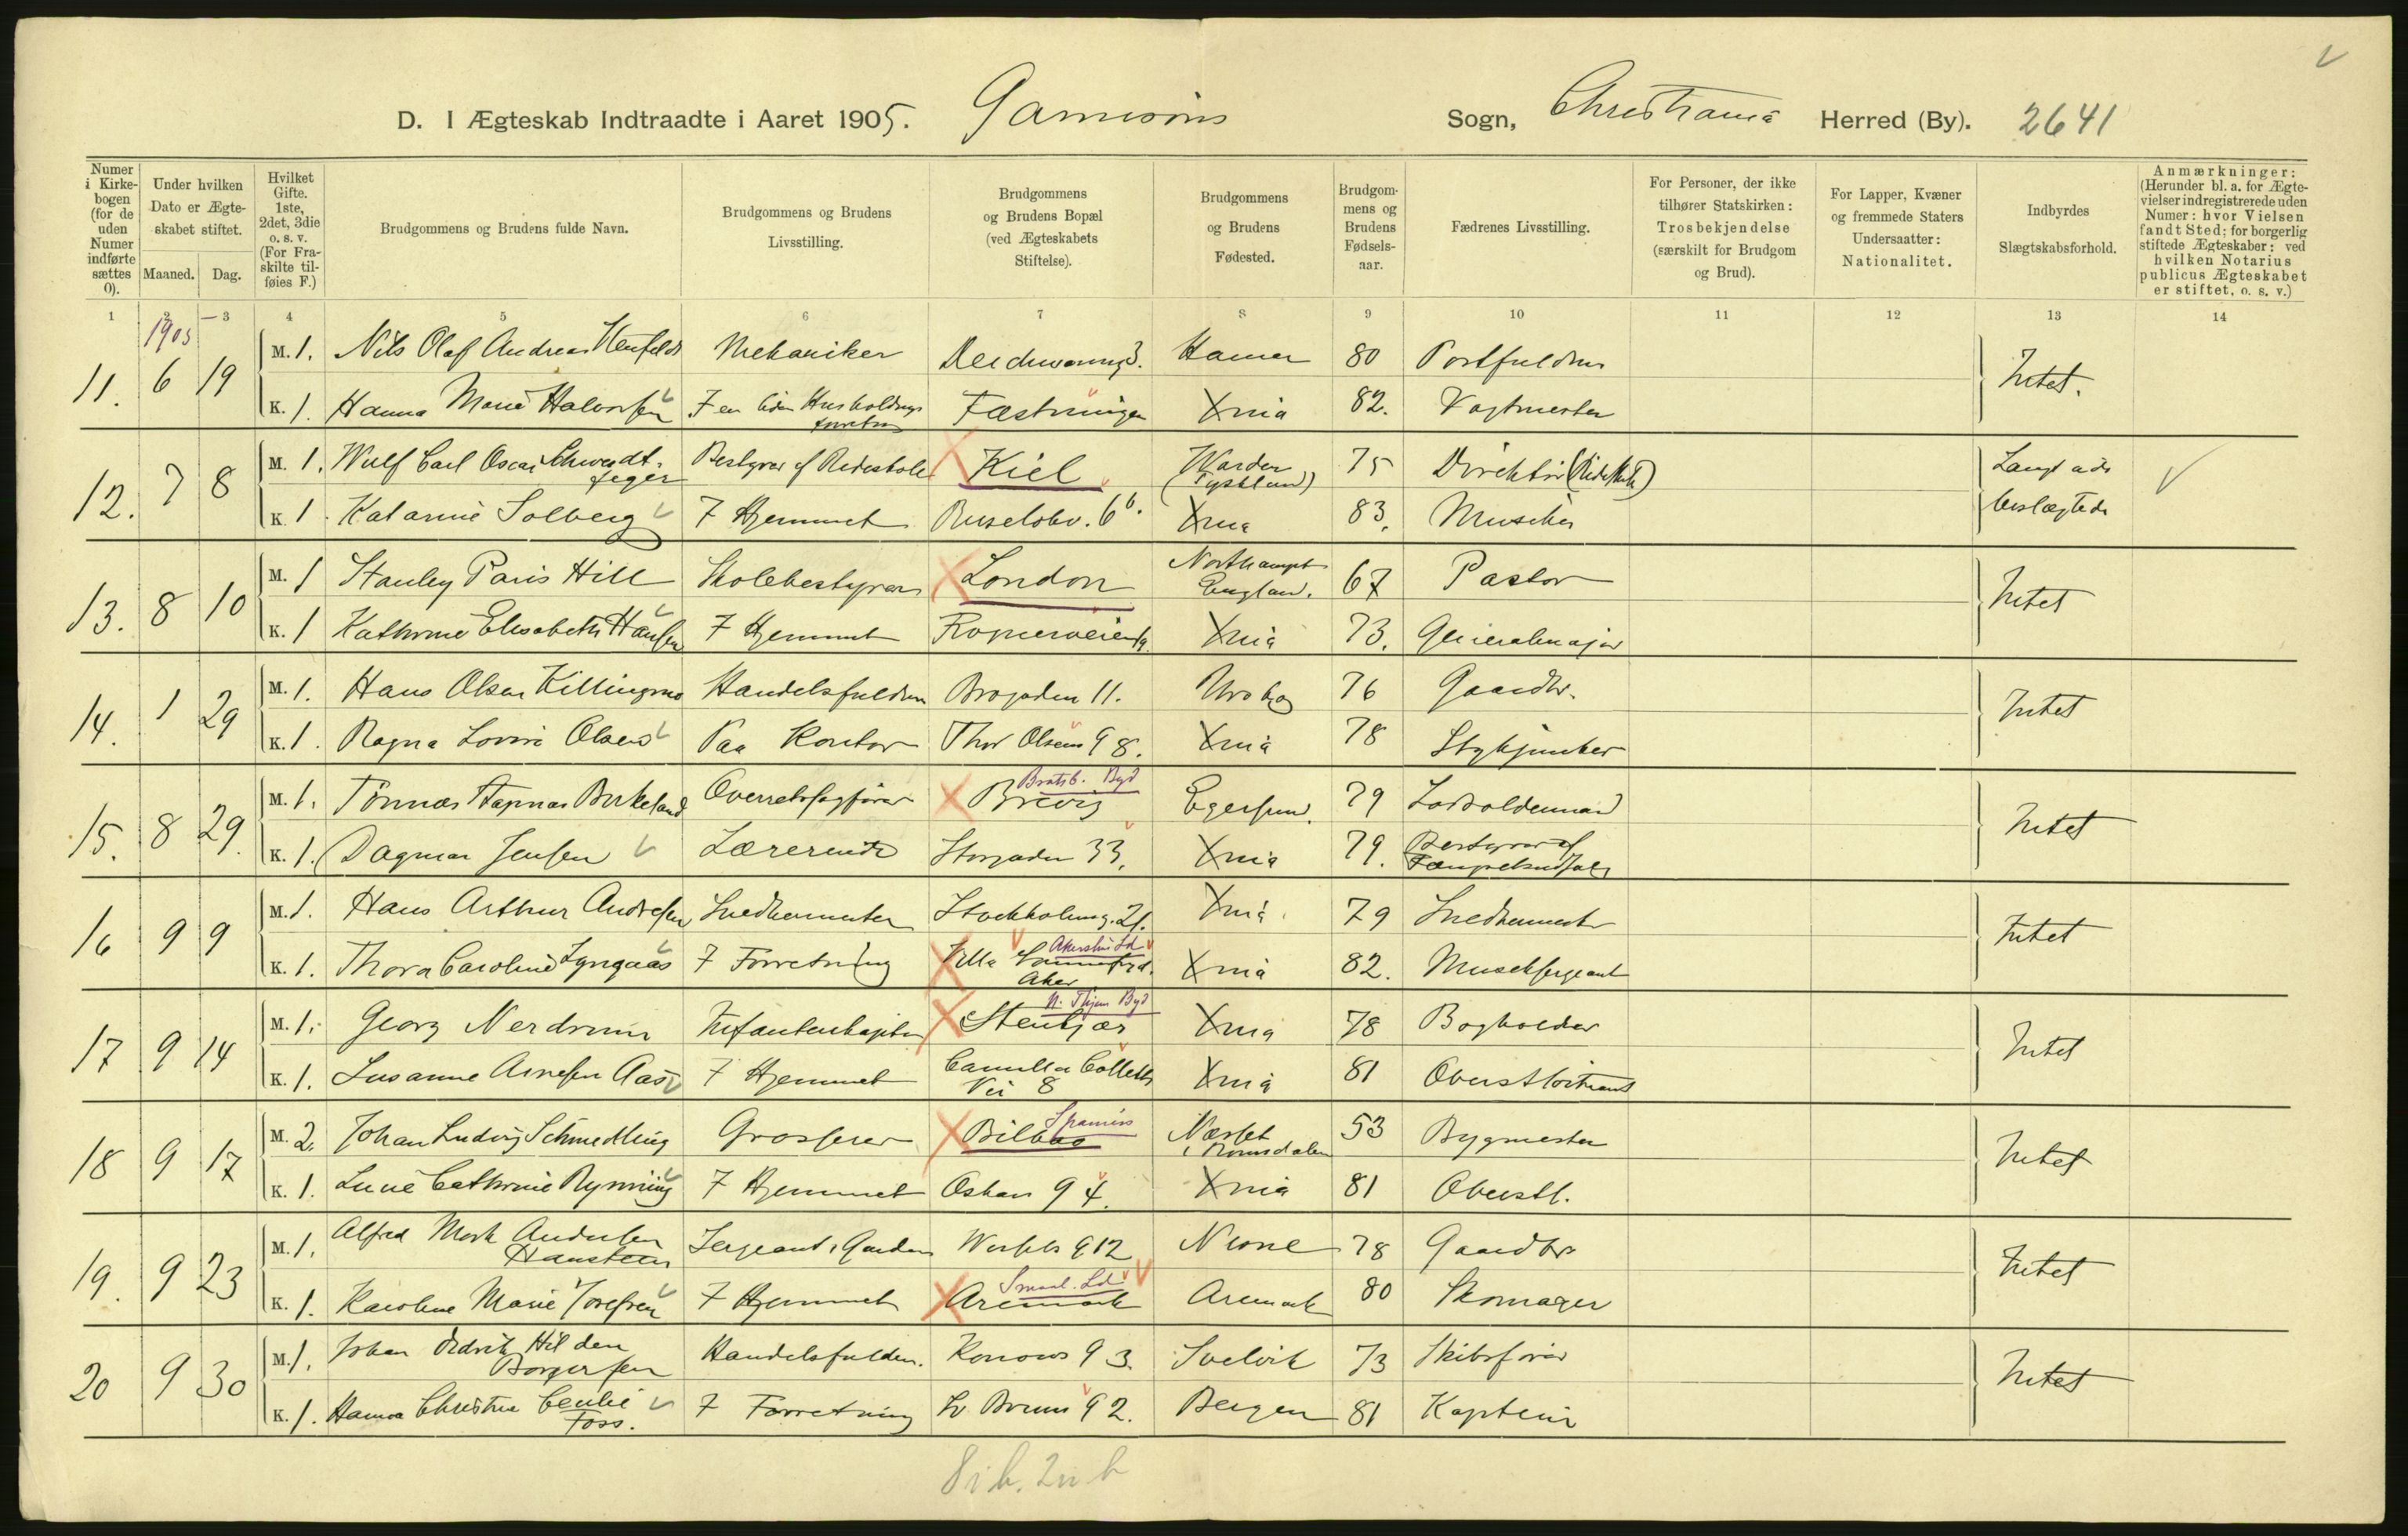 D. I Ægteskab Indtraadte i Aaret 1905. Garnisons Sogn, Christiania Herred (By). 2641
Numer i Kirkebogen (for de uden Numer indførte sættes 0).
Under hvilken Dato er Ægteskabet stiftet.
Maaned. Dag.
Hvilket Gifte. 1ste, 2det, 3die o. s. v. (For Fraskilte tilføies F.)
Brudgommens og Brudens fulde Navn.
Brudgommens og Brudens Livsstilling.
Brudgommens og Brudens Bopæl (ved Ægteskabets Stiftelse).
Brudgommens og Brudens Fødested.
Brudgommens og Brudens Fødselsaar.
Fædrenes Livsstilling.
For Personer, der ikke tilhører Statskirken: Trosbekjendelse (særskilt for Brudgom og Brud).
For Lapper, Kvæner og fremmede Staters Undersaatter: Nationalitet.
Indbyrdes Slægtskabsforhold.
Anmærkninger: (Herunder bl. a. for Ægtevielser indregistrerede uden Numer: hvor Vielsen fandt Sted; for borgerlig stiftede Ægteskaber: ved hvilken Notarius publicus Ægteskabet er stiftet, o. s. v.)
1 2 3 4 5 6 7 8 9 10 11 12 13 14
1905
11. 6 19 M. 1. Nils Olaf Andreas Mekaniker Hamar 80 Postfuldm Intet.
K. 1. Hanna Marie Halvorsen F en liden Husholdnings forretn Fæstningen Xnia 82. Vagtmester
12. 7 8 M. 1. Wulf Carl Oscar Schwerdtfeger Bestyrer af Rideskole Kiel Warder (Tyskland) 75 Direktør (Rideskole) Langt ude beslægtede
K. 1. Katarine Solberg F Hjemmet Ruseløkv. 6 b. Xnia 83. Musiker
13. 8 10 M. 1 Stanley Paris Hill Skolebestyrer London Northampt England. 67 Pastor Intet
K. 1 Kathrine Elisabeth Hansen F Hjemmet Frognerveien Xnia 73. Generalmajor
14. 1 29 M. 1. Hans Olsen Killingmo Handelsfuldm Brogaden 11. 76 Gaardbr. Intet
K. 1. Ragna Lovise Olsen Paa Kontor Thor Olsens g 8. Xnia 78 Stykjunker
15. 8 29. M. 1. Tønnes Birkeland Overretssagfører Bratsb. Byd Brevig Egersund. 79 Intet
K. 1. Dagmar Jensen Lærerinde Storgaden 33. Xnia 79. Bestyrer af
16 9 9 M. 1. Hans Arthur Andresen Snedkermester Stockholmsg. 21. Xnia 79 Snedkermest Intet
K. 1. Thora Caroline Lyngaas F Forretning Akershus Ld Villa Aker Xnia 82. Musiksergeant
17 9 14 M. 1. Georg Nerdrum Infanterikaptein N. Thjem Byd Stenkjær Xnia 78 Bogholder Intet
K. 1. Susanne Arnesen Aas F Hjemmet Camilla Colletts Vei 8 Xnia 81 Oberstløitnant
18 9 17 M. 2. Johan Ludvig Schmedling Grosserer Spanien Bilbao Næsset i Romsdalen 53 Bygmester Intet
K. 1. Cathrine Rynning F Hjemmet Oskars g 4. Xnia 81 Oberstl.
19. 9 23 M. 1. Alfred Mork Andersen Hansteen Sergeant i Garden Wessels g 12 78 Gaardbr Intet
K. 1. Karoline Marie Josefsen F Hjemmet Smaal. Ld Aremark Aremark 80 Skomager
20 9 30 M. 1. Johan Hilden Borgersen Handelsfuldm. Konows g 3. Svelvik 73 Skibsfører Intet
K. 1. Hanna Christine Foss. F Forretning Bruns g 2. Bergen 81 Kaptein
8 i b. 2 u b